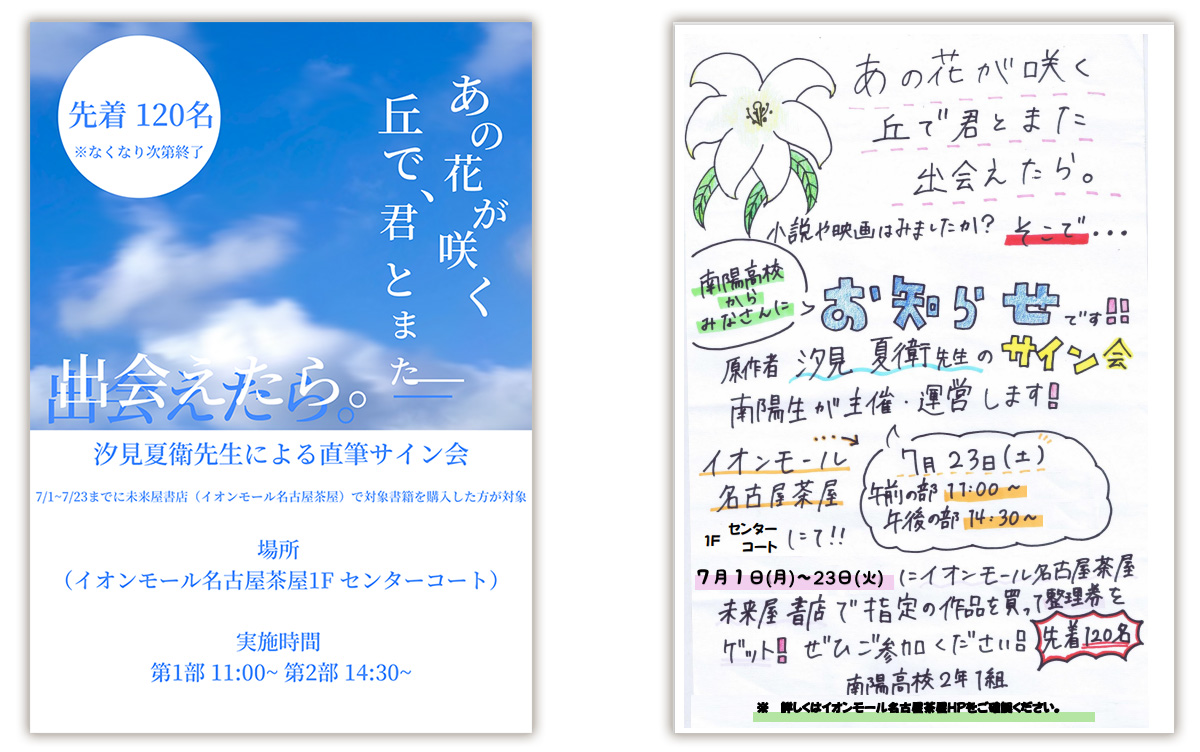 先着 120名
※なくなり次第終了
あの花が咲く
丘で、君とまた
出会えたら。
汐見夏衛先生による直筆サイン会
7/1~7/23までに未来屋書店（イオンモール名古屋茶屋）で対象書籍を購入した方が対象
場所
（イオンモール名古屋茶屋1F センターコート）
実施時間
第1部 11:00~ 第2部 14:30~
あの花が咲く
丘で君とまた
出会えたら。
小説や映画はみましたか? そこで・・・
南陽高校
から
みなさんに
お知らせです!!
原作者 汐見 夏衛先生のサイン会
南陽生が主催・運営します!
イオンモール
名古屋茶屋
1F センターコート にて!!
7月23日(土)
午前の部 11:00～
午後の部 14:30～
7月1日(月)～23日(火) にイオンモール名古屋茶屋
未来屋書店で指定の作品を買って整理券を
ゲット! ぜひご参加ください!!
先着120名
南陽高校2年1組
※ 詳しくはイオンモール名古屋茶屋HPをご確認ください。